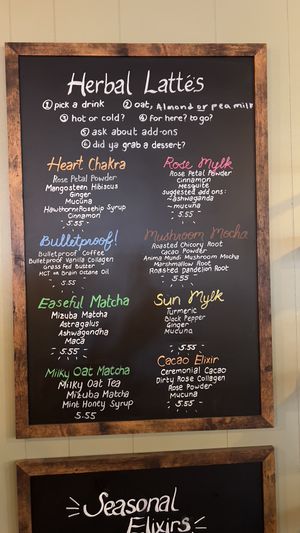 Herbal Lattés
① pick a drink ② oat, Almond or pea milk
③ hot or cold? ④ for here? to go?
⑤ ask about add-ons
⑥ did ya grab a dessert?
Heart Chakra
Rose Petal Powder
Mangosteen Hibiscus
Ginger
Mucuna
Hawthorn Rosehip Syrup
Cinnamon
5.55
Rose Mylk
Rose Petal Powder
Cinnamon
Mesquite
Suggested add-ons:
~ashwaganda
~mucuna
5.55
Bulletproof!
Bulletproof Coffee
Bulletproof Vanilla Collagen
Grass Fed Butter
MCT or Brain Octane Oil
5.55
Mushroom Mocha
Roasted Chicory Root
Cacao Powder
Anima Mundi Mushroom Mocha
Marshmallow Root
Roasted Dandelion Root
5.55
Easeful Matcha
Mizuba Matcha
Astragalus
Ashwagandha
Maca
5.55
Sun Mylk
Turmeric
Black Pepper
Ginger
Mucuna
5.55
Milky Oat Matcha
Milky Oat Tea
Mizuba Matcha
Mint Honey Syrup
5.55
Cacao Elixir
Ceremonial Cacao
Dirty Rose Collagen
Rose Powder
Mucuna
5.55
Seasonal
Elixirs